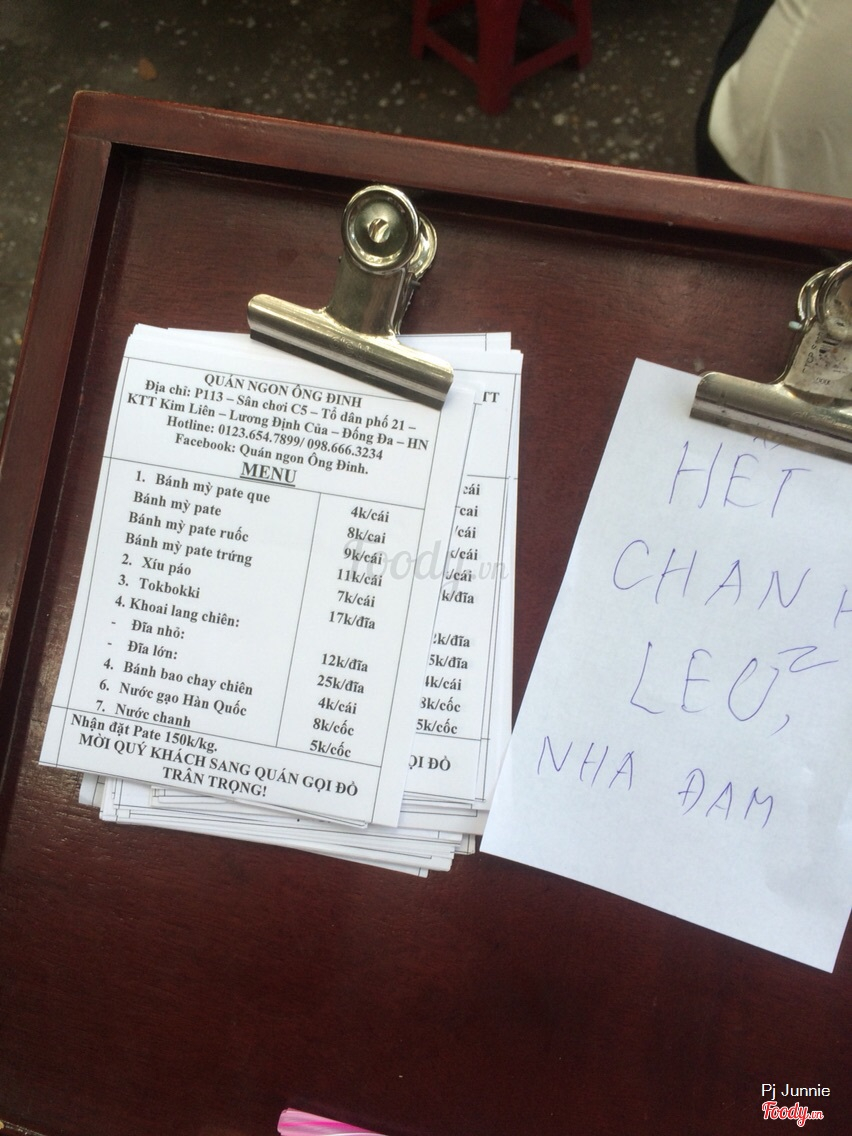 QUÁN NGON ÔNG ĐINH
Địa chỉ: P113 – Sân chơi C5 – Tổ dân phố 21 –
KTT Kim Liên – Lương Định Của – Đống Đa – HN
Hotline: 0123.654.7899/ 098.666.3234
Facebook: Quán ngon Ông Đinh.
MENU
1. Bánh mỳ pate que 4k/cái
Bánh mỳ pate 8k/cai
Bánh mỳ pate ruốc 9k/cái
Bánh mỳ pate trứng 11k/cái
2. Xíu páo 7k/cái
3. Tokbokki 17k/đĩa
4. Khoai lang chiên:
- Đĩa nhỏ: 12k/đĩa
- Đĩa lớn: 25k/đĩa
4. Bánh bao chay chiên 4k/cái
6. Nước gạo Hàn Quốc 8k/cốc
7. Nước chanh 5k/cốc
Nhận đặt Pate 150k/kg.
MỜI QUÝ KHÁCH SANG QUÁN GỌI ĐỒ
TRÂN TRỌNG!
TT
cái
cai
/cái
/cái
/cái
k/đĩa
2k/đĩa
5k/đĩa
4k/cái
8k/cốc
5k/cốc
ỌI ĐỒ
HẾT
CHANH
LEO,
NHA ĐAM
Foody.vn
Pj Junnie
Foody.vn